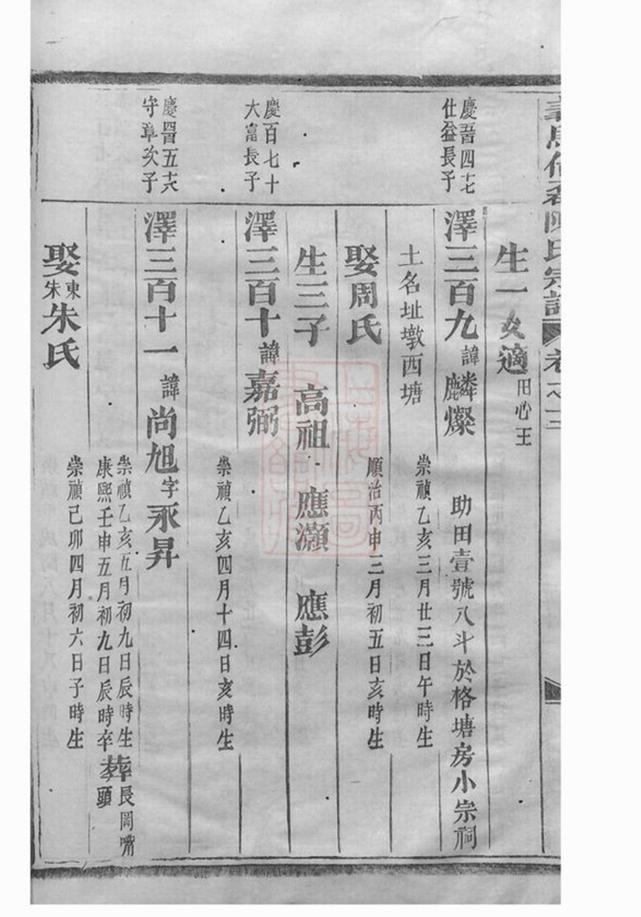 陳氏宗譜
生一女適田心王
仕益長子
澤三百九 諱麟燦 助田壹號八斗於格塘房小宗祠
土名址墩西塘 崇禎乙亥三月廿三日午時生
娶周氏 順治丙申三月初五日亥時生
生三子 高祖 應灝 應彭
慶百七十
大富長子
澤三百十 諱嘉弼
崇禎乙亥四月十四日亥時生
守章次子
澤三百十一 諱尚旭字永昇
崇禎乙亥五月初九日辰時生
康熙壬申五月初九日辰時卒 葬長岡嘴頭
娶東朱朱氏 崇禎己卯四月初六日子時生